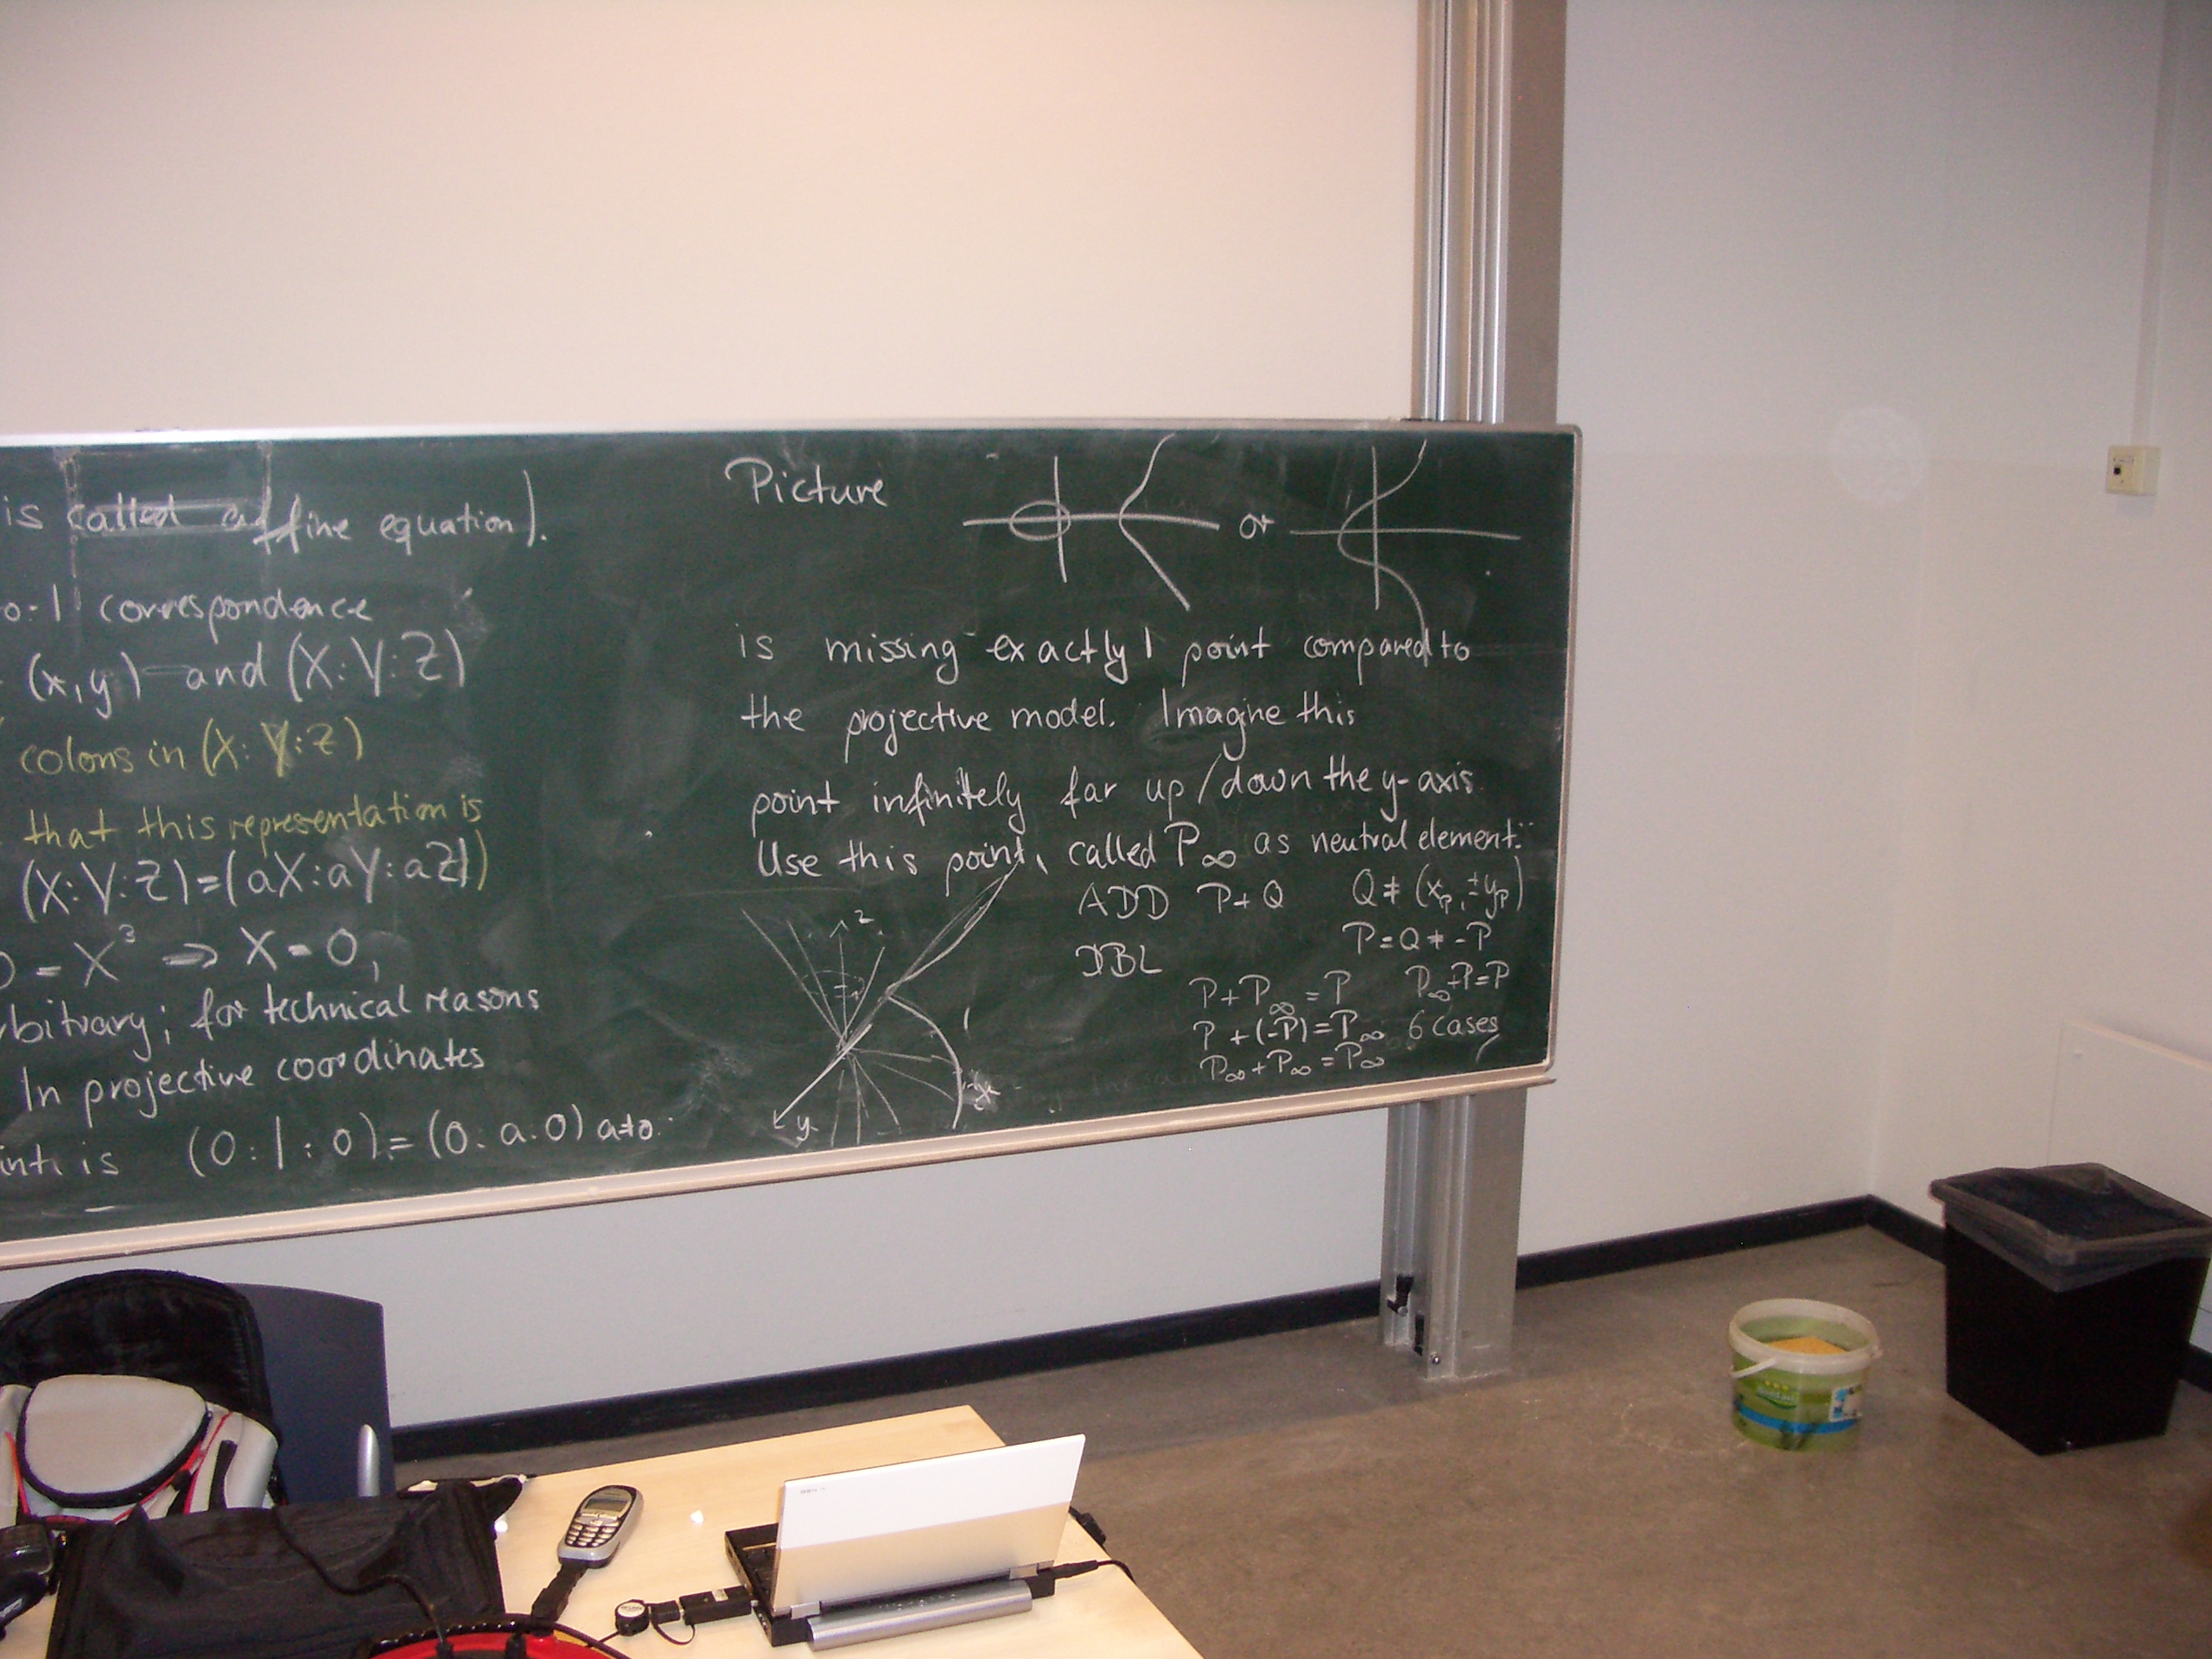 is called affine equation).
correspondence
(x,y) and (X:Y:Z)
colons in (X:Y:Z)
that this representation is
(X:Y:Z)=(aX:aY:aZ))
= X³ ⇒ X=0,
rbitrary; for technical reasons
In projective coordinates
int is (0:1:0)=(0:a:0) a≠0.
Picture
or
is missing exactly 1 point compared to
the projective model. Imagine this
point infinitely far up/down the y-axis.
Use this point, called P∞ as neutral element.
ADD P+Q Q≠(x_P,±y_P)
DBL P=Q≠-P
P+P∞=P P∞+P=P
P+(-P)=P∞ 6 cases
P∞+P∞=P∞
z
x
y